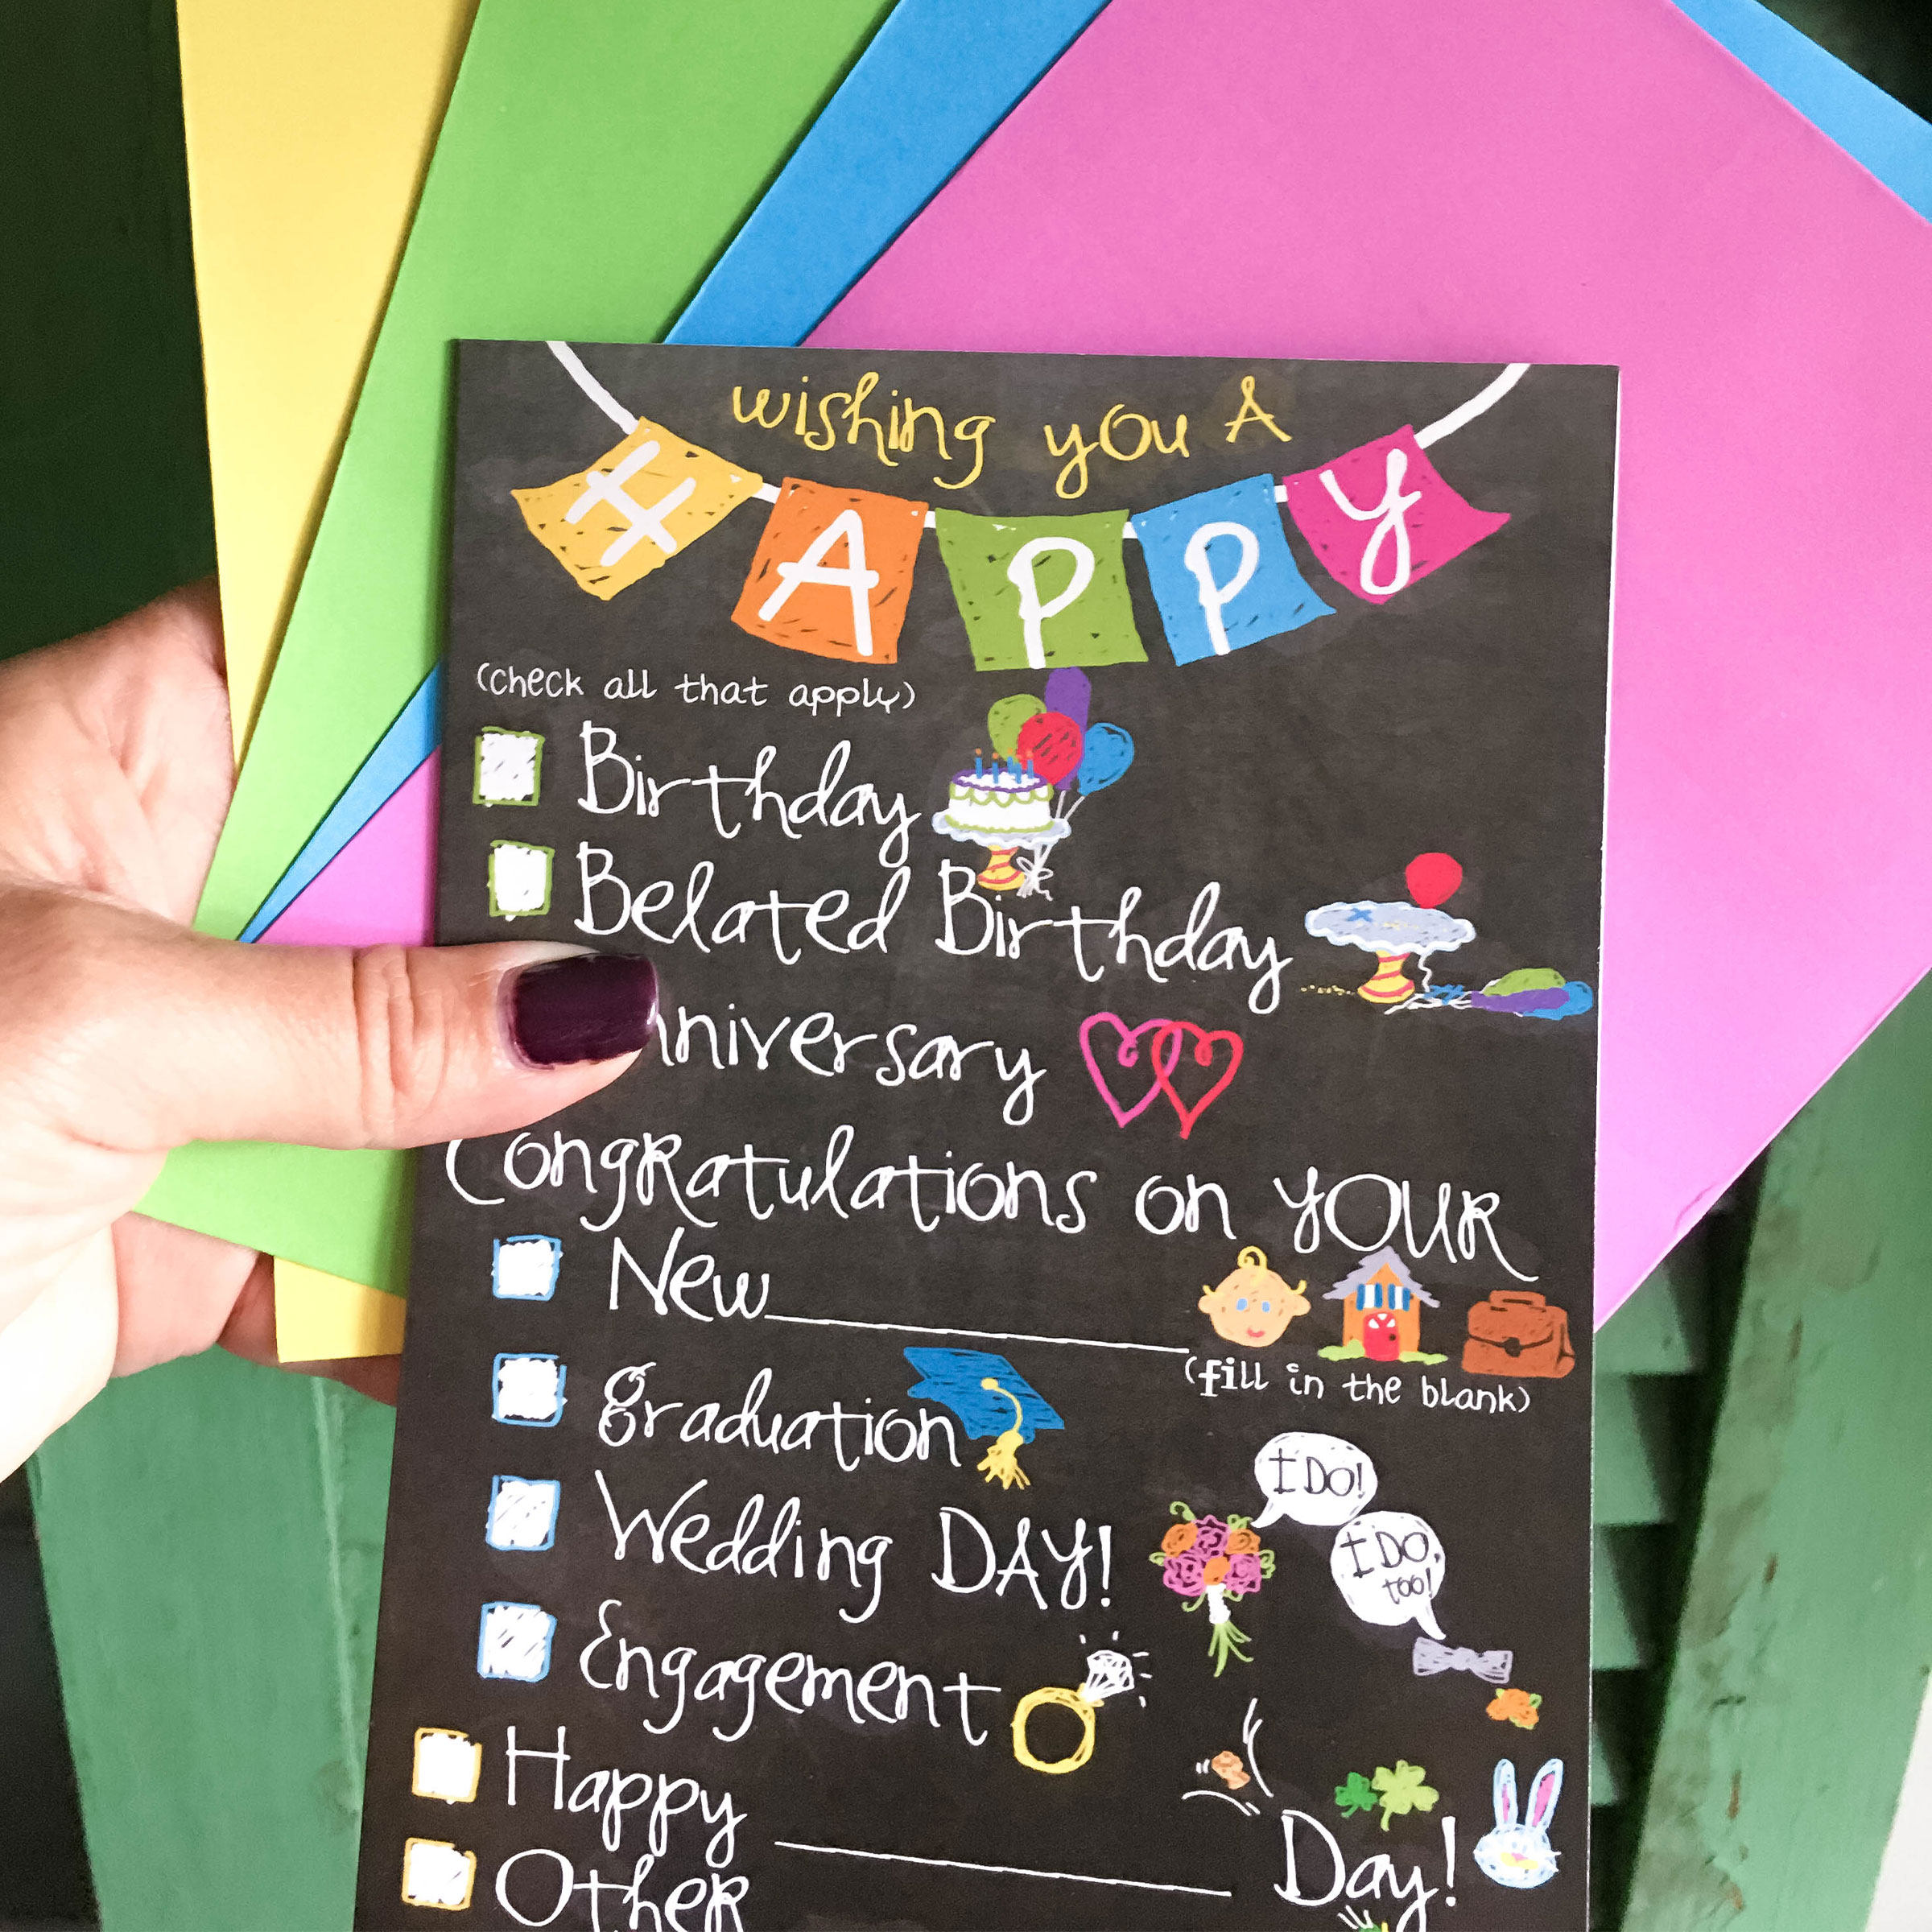 wishing you A
HAPPY
(check all that apply)
Birthday
Belated Birthday
nniversary
Congratulations on YOUR
New
(fill in the blank)
graduation
I DO!
Wedding DAY!
I DO,
too!
Engagement
Happy Day!
Other